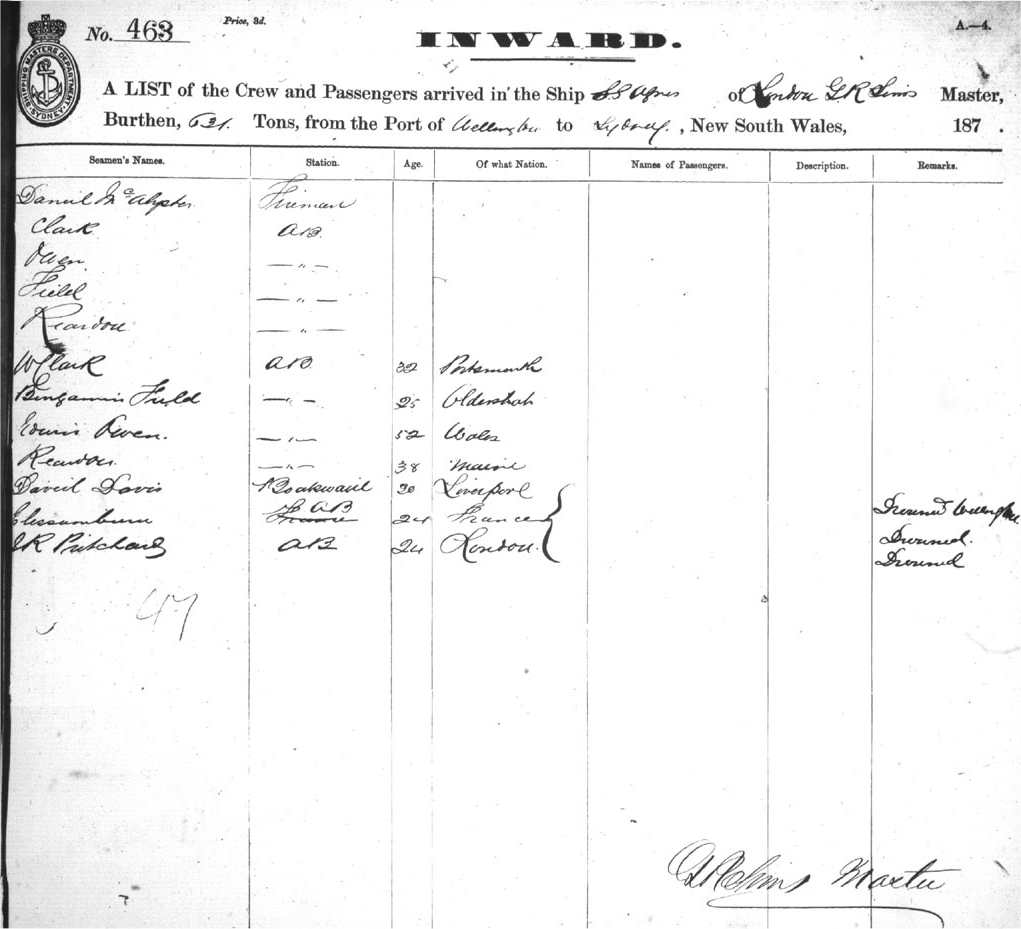 No. 463
Price, 3d.
A.—4.
SHIPPING MASTERS DEPARTMENT SYDNEY
INWARD.
A LIST of the Crew and Passengers arrived in the Ship SS Agnes of London G R Sims Master,
Burthen, Tons, from the Port of Wellington to Sydney, New South Wales, 187 .
Seamen's Names. Station. Age. Of what Nation. Names of Passengers. Description. Remarks.
Daniel McAlpster Fireman
Clark AB
Owen — " —
Field — " —
Reardon — " —
W Clark AB 32 Portsmouth
Benjamin Field — " — 25 Oldershot
Edwin Owen. — " — 52 Wales
Reardon. — " — 38 Maine
David Davis 30 Liverpool
AB 24 France Drowned Wellington
J R Pritchard AB 24 London. Drowned.
Drowned
47
G R Sims Master